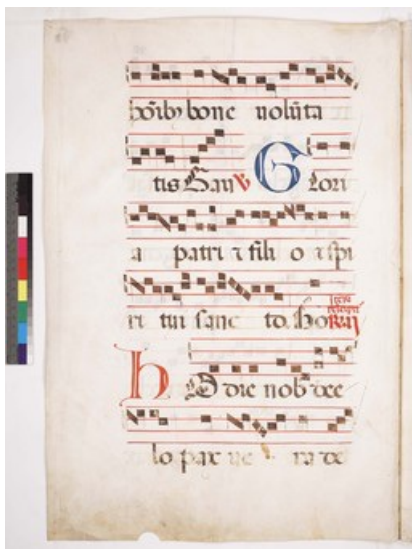 hoībȝ bone volūta
tis Gau V Glori
a patri ⁊ fili o ⁊ spi
ri tui sanc to. Ho
HO die nob de ce
lo pax ve ra de